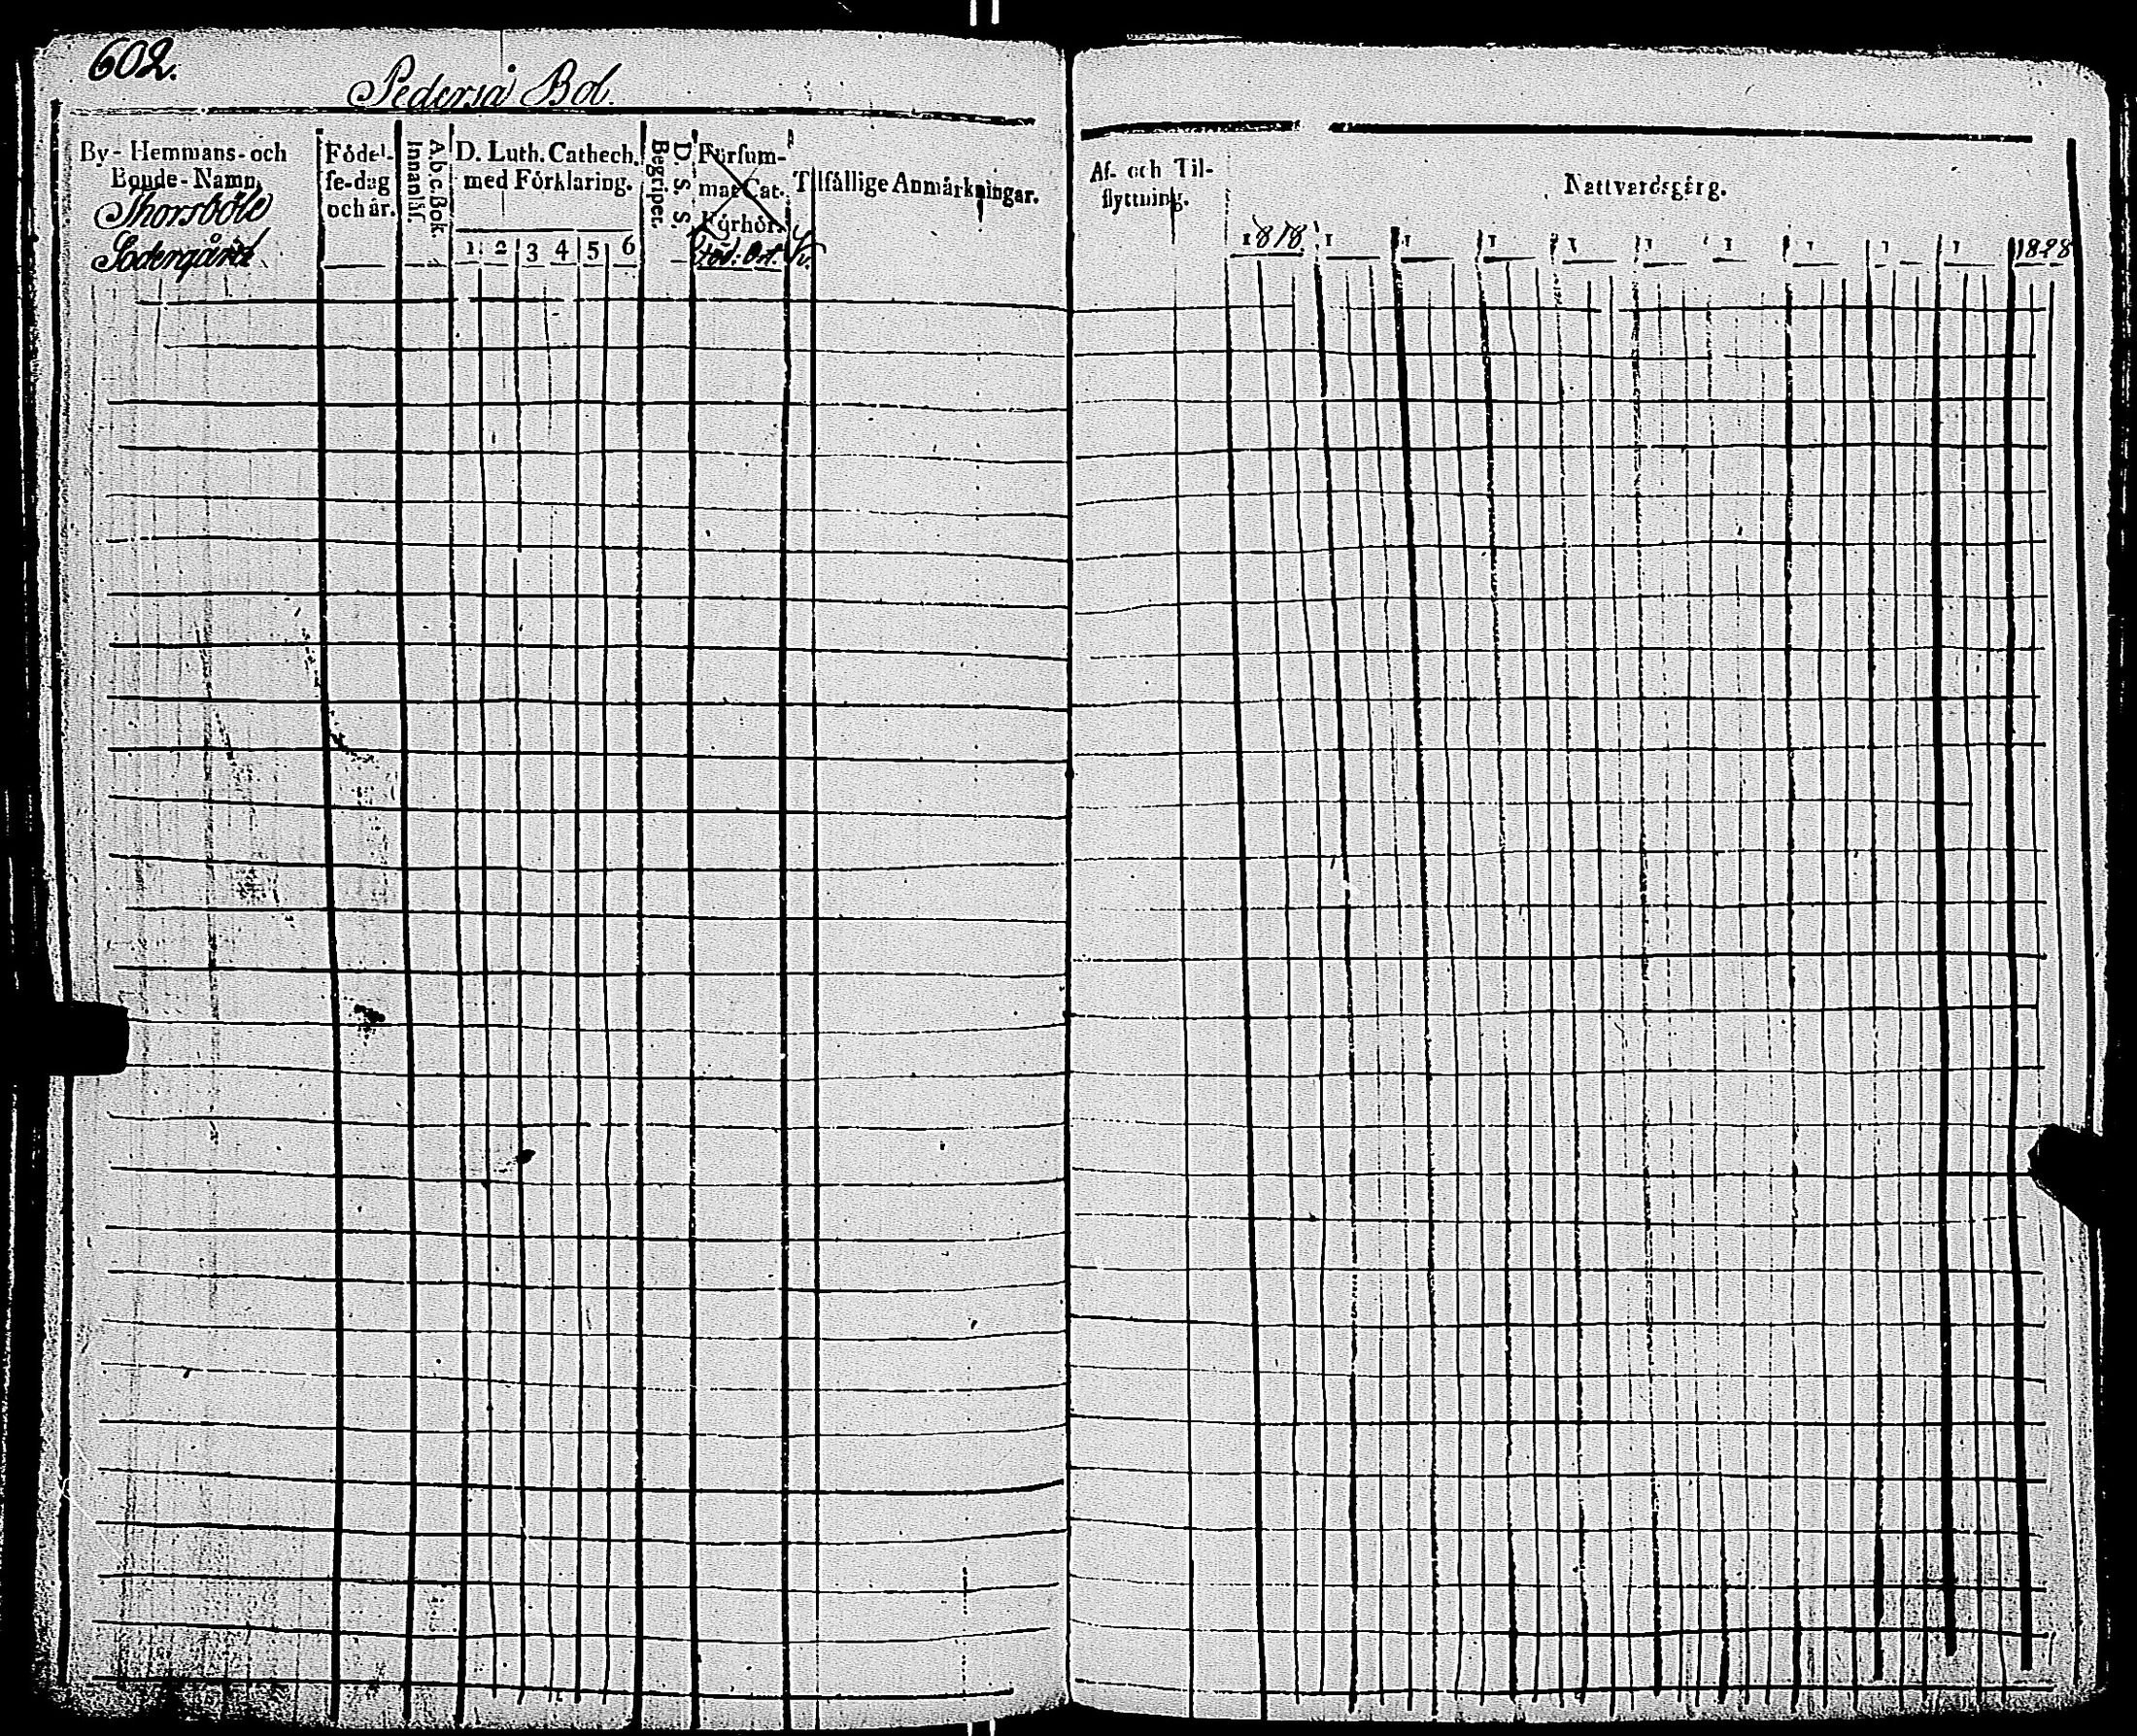 602.
Pederså Bol.
By-Hemmans-och
Bonde-Namn.
Thorsböle
Södergård
Födel-
se-dag
och år.
A.b.c.Bok.
Innanläs.
D. Luth. Cathech.
med Förklaring.
1. 2 3 4 5 6
D. S. S.
Begriper.
Försum-
mat Cat.
Förhör.
Tilfällige Anmärkningar.
Af- och Til-
flyttning.
Nattvardsgång.
1818. 1 1 1 1 1 1 1 1 1 1828